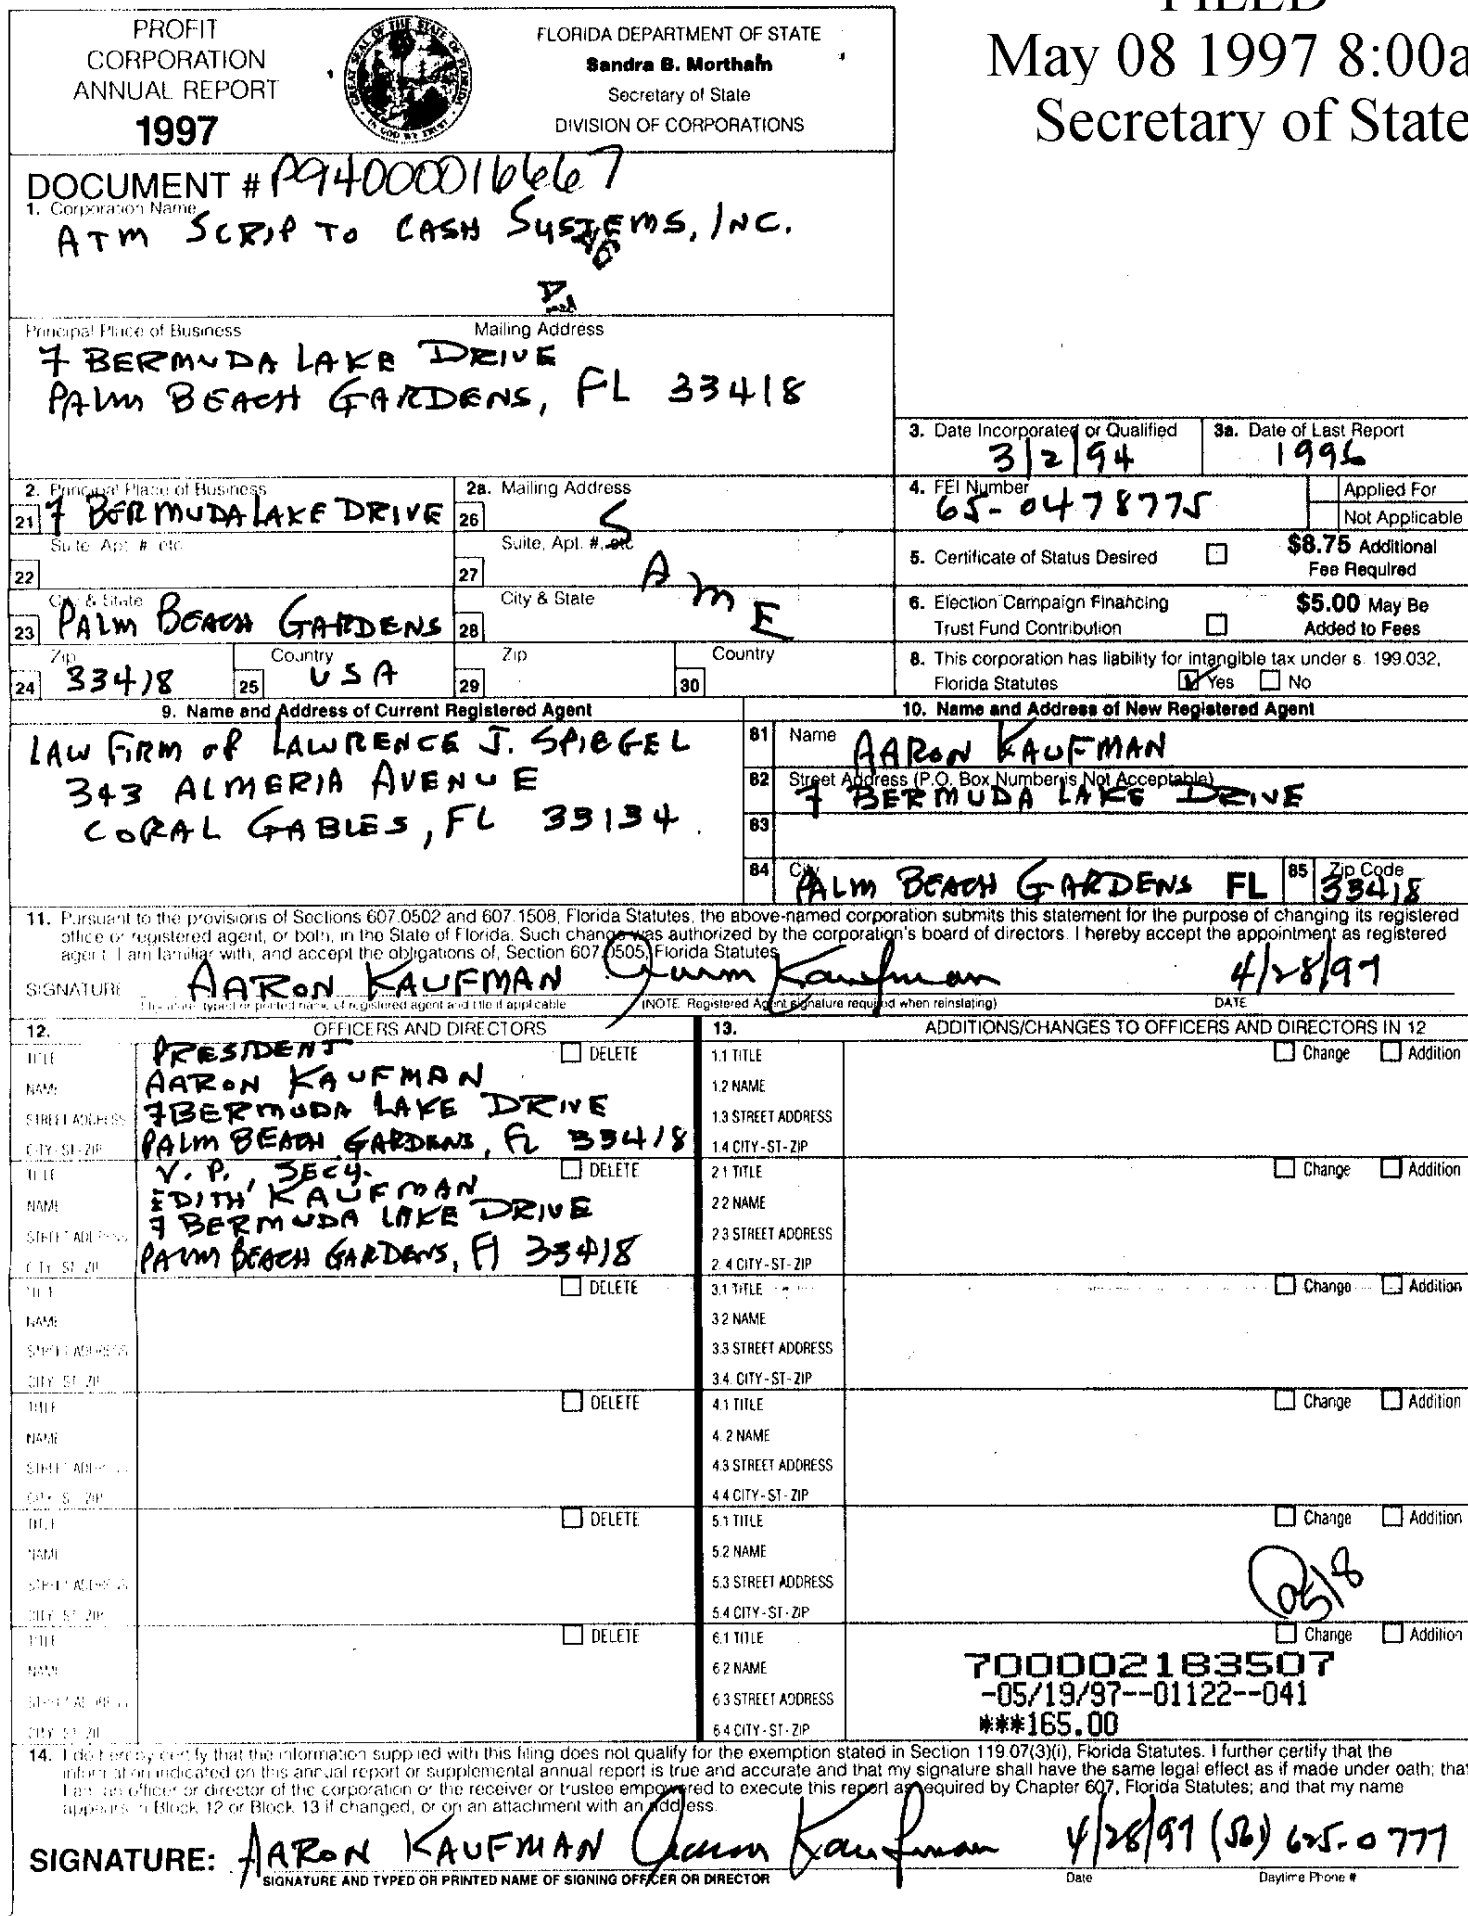 PROFIT
CORPORATION
ANNUAL REPORT
1997
GREAT SEAL OF THE STATE OF FLORIDA
IN GOD WE TRUST
FLORIDA DEPARTMENT OF STATE
Sandra B. Mortham
Secretary of State
DIVISION OF CORPORATIONS
FILED
May 08 1997 8:00a
Secretary of State
DOCUMENT # P94000016667
1. Corporation Name
ATM SCRIP TO CASH SYSTEMS, INC.
Principal Place of Business Mailing Address
7 BERMUDA LAKE DRIVE
PALM BEACH GARDENS, FL 33418
3. Date Incorporated or Qualified 3/2/94
3a. Date of Last Report 1996
2. Principal Place of Business
21 7 BERMUDA LAKE DRIVE
2a. Mailing Address
26 SAME
4. FEI Number 65-0478775
Applied For
Not Applicable
Suite, Apt. #, etc.
22
Suite, Apt. #, etc.
27
5. Certificate of Status Desired $8.75 Additional Fee Required
City & State
23 PALM BEACH GARDENS
City & State
28
6. Election Campaign Financing Trust Fund Contribution $5.00 May Be Added to Fees
Zip
24 33418
Country
25 USA
Zip
29
Country
30
8. This corporation has liability for intangible tax under s. 199.032,
Florida Statutes Yes No
9. Name and Address of Current Registered Agent
LAW FIRM OF LAWRENCE J. SPIEGEL
343 ALMERIA AVENUE
CORAL GABLES, FL 33134
10. Name and Address of New Registered Agent
81 Name AARON KAUFMAN
82 Street Address (P.O. Box Number is Not Acceptable)
7 BERMUDA LAKE DRIVE
83
84 City PALM BEACH GARDENS FL 85 Zip Code 33418
11. Pursuant to the provisions of Sections 607.0502 and 607.1508, Florida Statutes, the above-named corporation submits this statement for the purpose of changing its registered
office or registered agent, or both, in the State of Florida. Such change was authorized by the corporation's board of directors. I hereby accept the appointment as registered
agent. I am familiar with, and accept the obligations of, Section 607.0505, Florida Statutes
SIGNATURE AARON KAUFMAN Aaron Kaufman 4/28/97
Signature, typed or printed name of registered agent and title if applicable (NOTE. Registered Agent signature required when reinstating) DATE
12. OFFICERS AND DIRECTORS
13. ADDITIONS/CHANGES TO OFFICERS AND DIRECTORS IN 12
TITLE PRESIDENT DELETE
NAME AARON KAUFMAN
STREET ADDRESS 7 BERMUDA LAKE DRIVE
CITY-ST-ZIP PALM BEACH GARDENS, FL 33418
1.1 TITLE Change Addition
1.2 NAME
1.3 STREET ADDRESS
1.4 CITY-ST-ZIP
TITLE V. P., SECY. DELETE
NAME EDITH KAUFMAN
STREET ADDRESS 7 BERMUDA LAKE DRIVE
CITY-ST-ZIP PALM BEACH GARDENS, Fl 33418
2.1 TITLE Change Addition
2.2 NAME
2.3 STREET ADDRESS
2.4 CITY-ST-ZIP
TITLE DELETE
NAME
STREET ADDRESS
CITY-ST-ZIP
3.1 TITLE Change Addition
3.2 NAME
3.3 STREET ADDRESS
3.4. CITY-ST-ZIP
TITLE DELETE
NAME
STREET ADDRESS
CITY-ST-ZIP
4.1 TITLE Change Addition
4.2 NAME
4.3 STREET ADDRESS
4.4 CITY-ST-ZIP
TITLE DELETE
NAME
STREET ADDRESS
CITY-ST-ZIP
5.1 TITLE Change Addition
5.2 NAME
5.3 STREET ADDRESS
5.4 CITY-ST-ZIP
TITLE DELETE
NAME
STREET ADDRESS
CITY-ST-ZIP
6.1 TITLE Change Addition
6.2 NAME
6.3 STREET ADDRESS
6.4 CITY-ST-ZIP
700002183507
-05/19/97--01122--041
***165.00
14. I do hereby certify that the information supplied with this filing does not qualify for the exemption stated in Section 119.07(3)(i), Florida Statutes. I further certify that the
information indicated on this annual report or supplemental annual report is true and accurate and that my signature shall have the same legal effect as if made under oath; that
I am an officer or director of the corporation or the receiver or trustee empowered to execute this report as required by Chapter 607, Florida Statutes; and that my name
appears in Block 12 or Block 13 if changed, or on an attachment with an address.
SIGNATURE: AARON KAUFMAN Aaron Kaufman 4/28/97 (561) 625-0777
SIGNATURE AND TYPED OR PRINTED NAME OF SIGNING OFFICER OR DIRECTOR Date Daytime Phone #